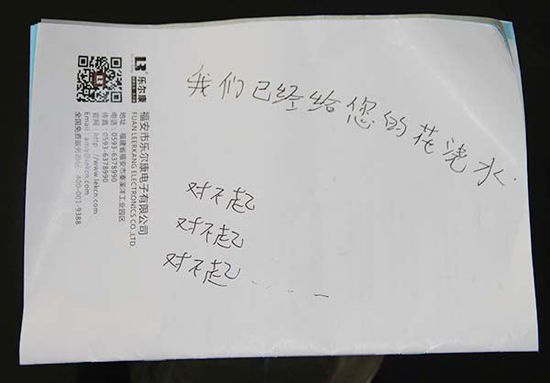 我们已经给您的花浇水.
对不起
对不起
对不起.....
乐尔康
福安市乐尔康电子有限公司
FUAN LEERKANG ELECTRONICS CO.,LTD.
地址 福建省福安市秦溪洋工业园区
电话 0593-6378990
传真 0593-6378990
官网 http://www.lekcn.com
全国免费服务热线 400-001-9388